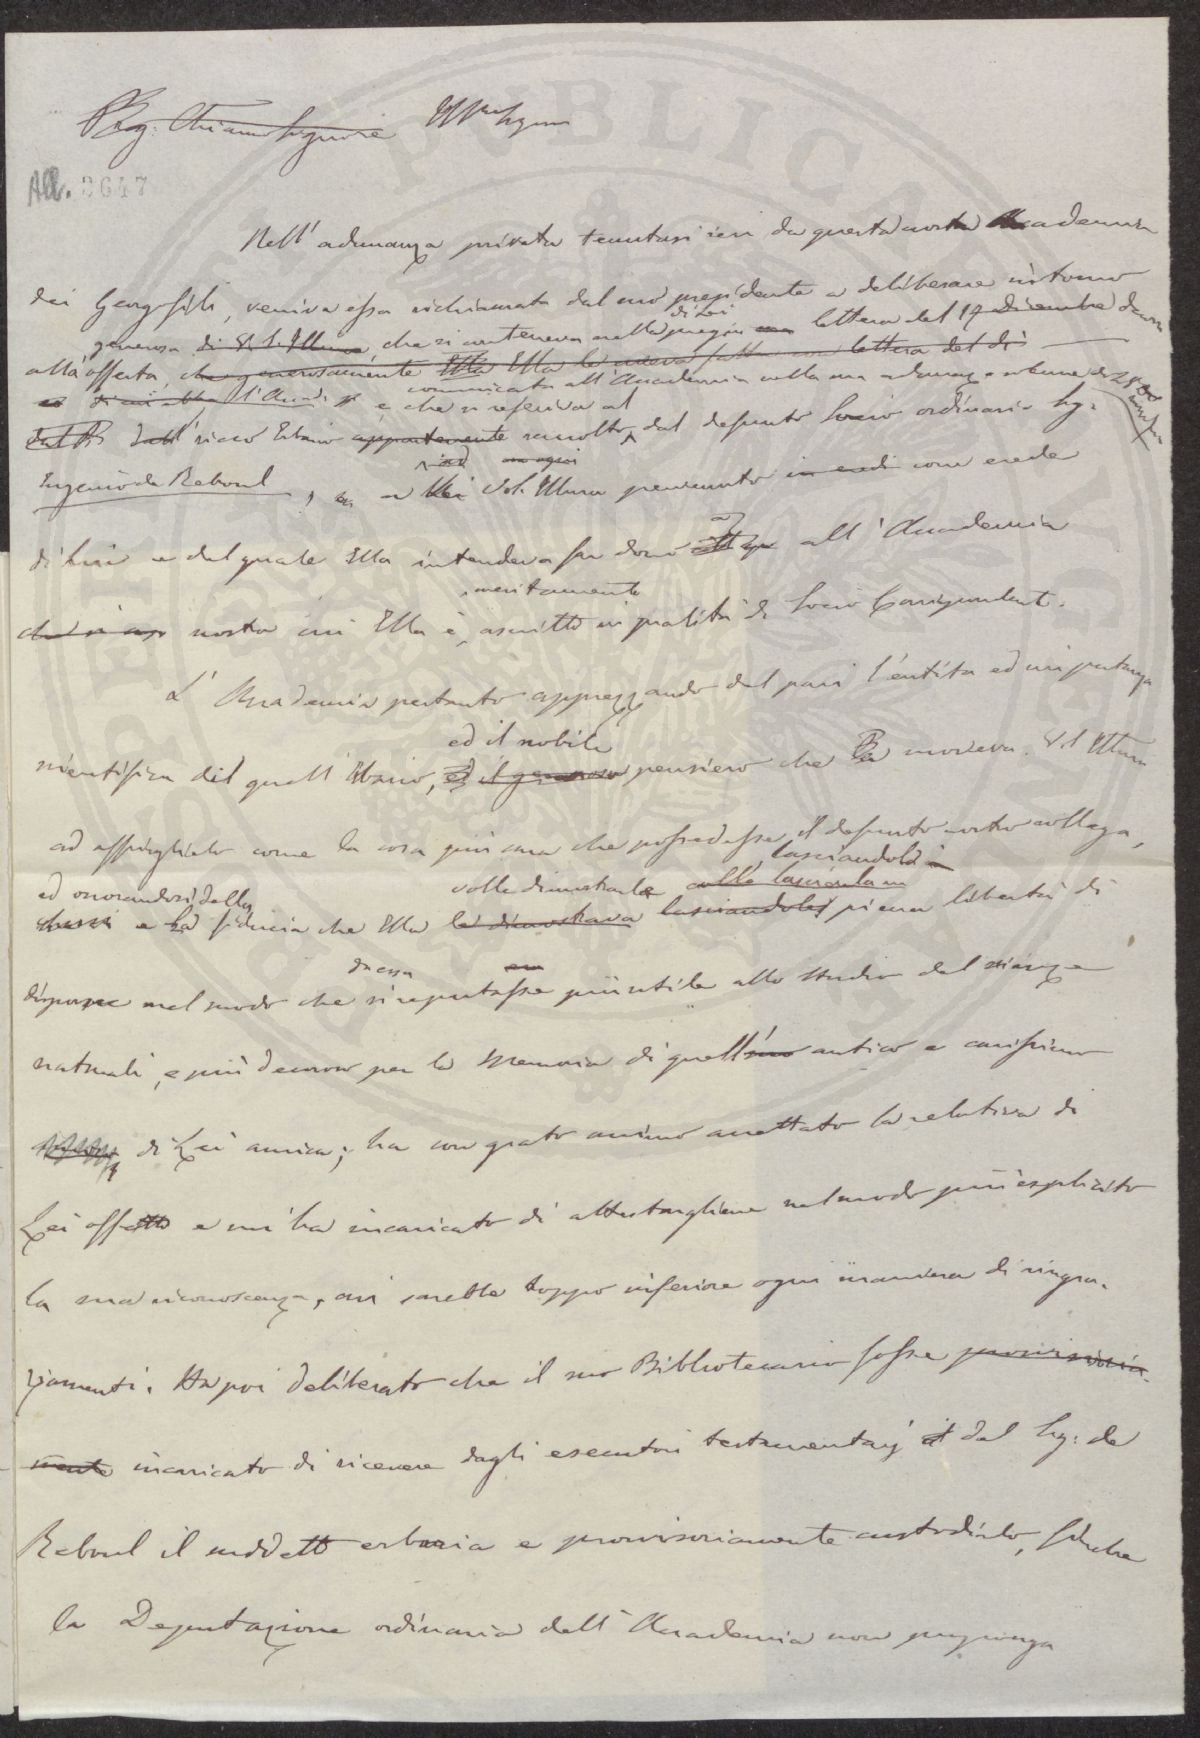 Preg. Chiarmo Signore Illmo Signore
All. 3647
Nell'adunanza privata tenutasi ieri da questa nostra Accademia
dei Georgofili, veniva essa richiamata dal suo presidente a deliberare intorno
generosa di V. S. Illma, che si conteneva nella pregia di Lei lettera del 17 dicembre decorso
all'offerta, che generosamente Ella le aveva fatta con lettera del dì
comunicata all'Accademia nella sua adunanza solenne de 28
e che si referiva al
dell' ricco Erbario appartenente raccolto dal defunto Socio ordinario Sig.
Eugenio de Reboul, a Lei V. S. Illma pervenuto in eredi come erede
di Lui e del quale Ella intendeva far dono all'Accademia
meritamente
nostra cui Ella è ascritto in qualità di Socio Corrispondente.
L'Accademia pertanto apprezzando del pari l'entità ed importanza
ed il nobile
scientifica di quell'Erbario, ed il generoso pensiero che La moveva V. S. Illma
ad offrirglielo come la cosa più cara che possedesse il defunto nostro collega,
lasciandole
ed onorandosi della volle dimostrarle colla lasciandole
e la fiducia che Ella le dimostrava lasciandole piena libertà di
da essa
disporre nel modo che si reputasse più utile allo studio del scienze
naturali, e più decoroso per la Memoria di quell' antico e carissimo
di Lei amico; ha con grato animo accettato la relativa di
Lei offerta e mi ha incaricato di attestargliene nel modo più esplicito
la sua riconoscenza, cui sarebbe troppo inferiore ogni maniera di ringra-
ziamenti. Ha poi deliberato che il suo Bibliotecario fosse provvisoria-
mente incaricato di ricevere dagli esecutori testamentarj dal Sig: de
Reboul il suddetto erbario e provvisoriamente custodirlo, finche
la Deputazione ordinaria dell'Accademia non proponga